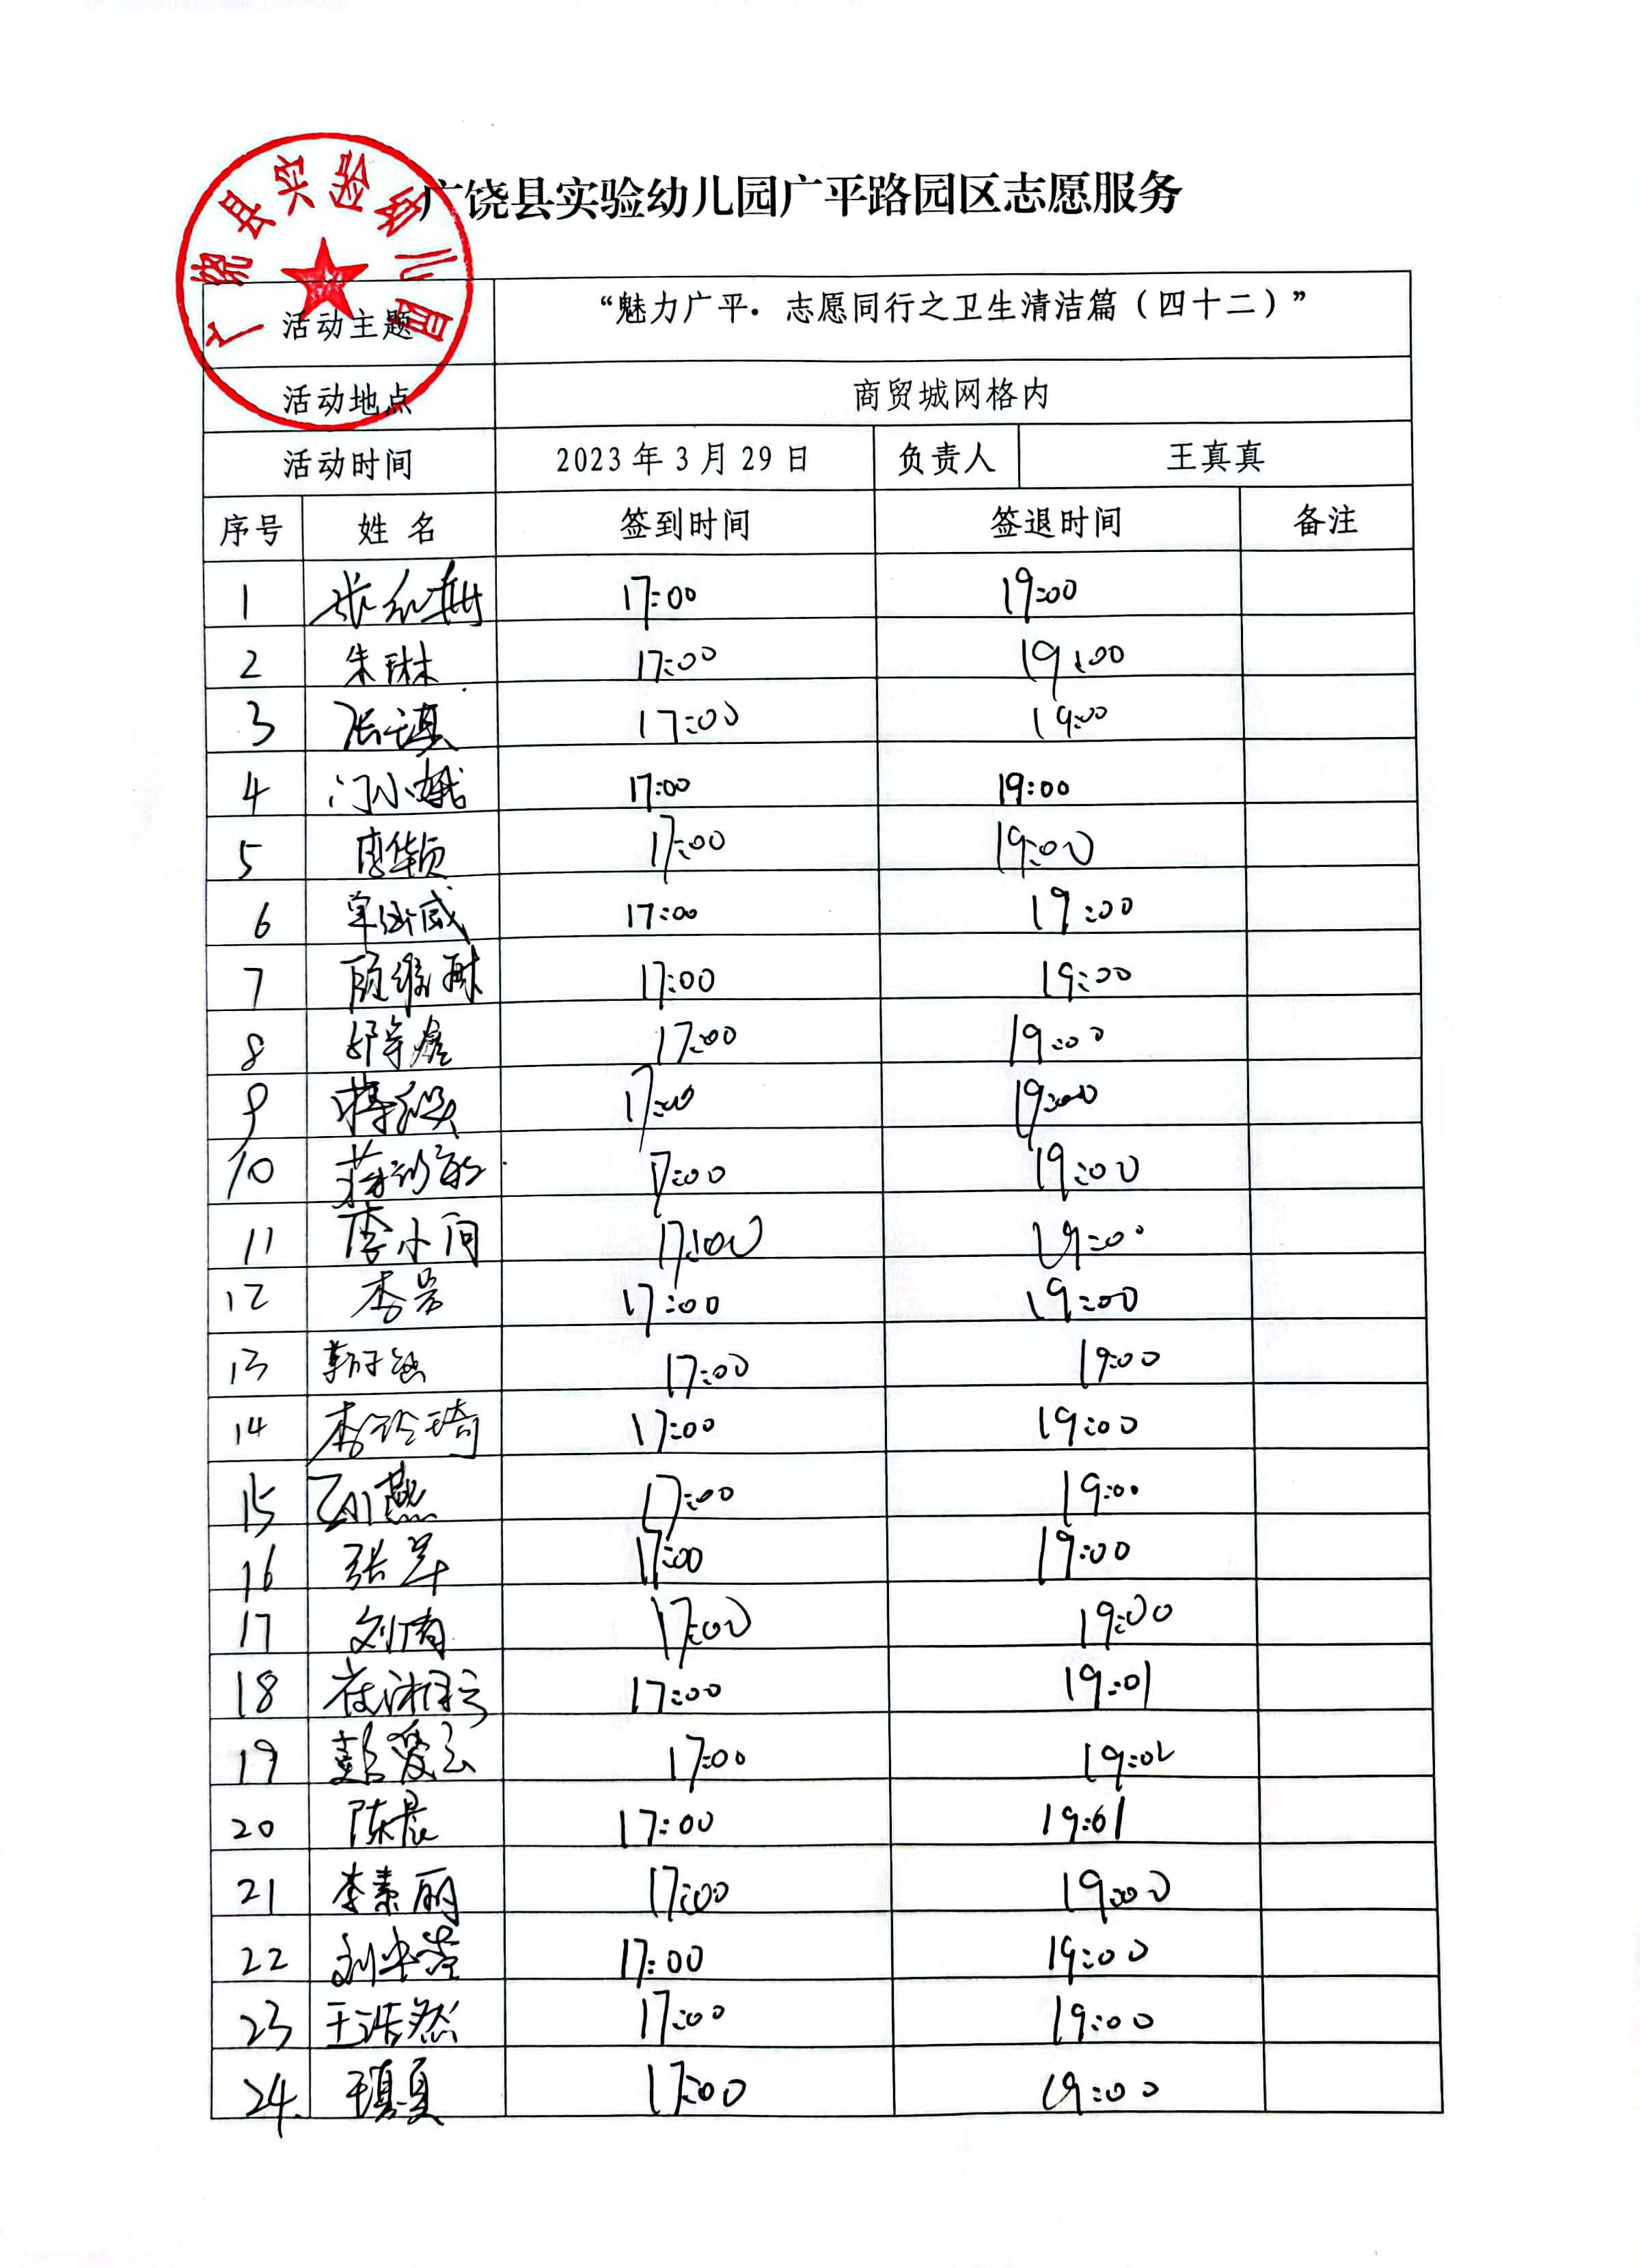 广饶县实验幼儿园
广饶县实验幼儿园广平路园区志愿服务
活动主题 “魅力广平．志愿同行之卫生清洁篇（四十二）”
活动地点 商贸城网格内
活动时间 2023年3月29日 负责人 王真真
序号 姓名 签到时间 签退时间 备注
1 17:00 19:00
2 朱琳 17:00 19:00
3 17:00 19:00
4 门小娥 17:00 19:00
5 17:00 19:00
6 17:00 19:00
7 17:00 19:00
8 17:00 19:00
9 17:00 19:00
10 17:00 19:00
11 李小间 17:00 19:00
12 17:00 19:00
13 17:00 19:00
14 李玲琦 17:00 19:00
15 孙燕 17:00 19:00
16 17:00 19:00
17 刘倩 17:00 19:00
18 17:00 19:01
19 彭爱云 17:00 19:02
20 陈晨 17:00 19:01
21 李素丽 17:00 19:00
22 17:00 19:00
23 王浩然 17:00 19:00
24 17:00 19:00